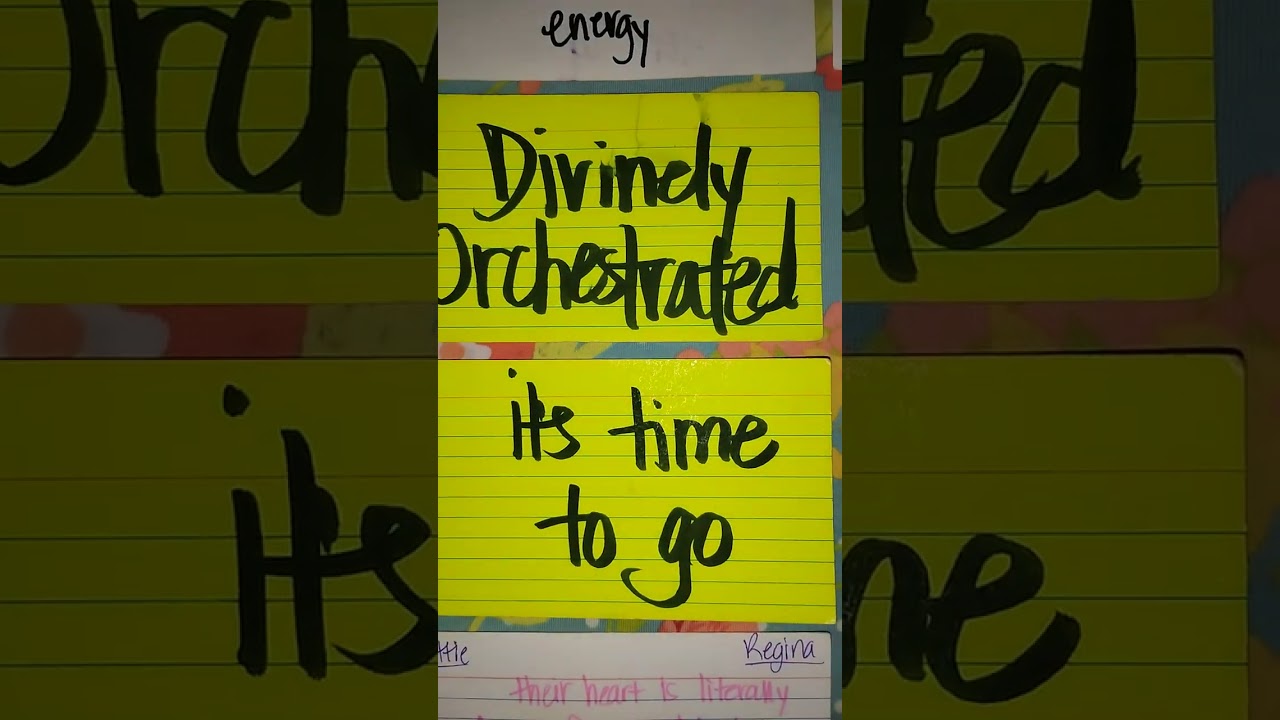 energy
Divinely
Orchestrated
it's time
to go
ttle Regina
their heart is literally